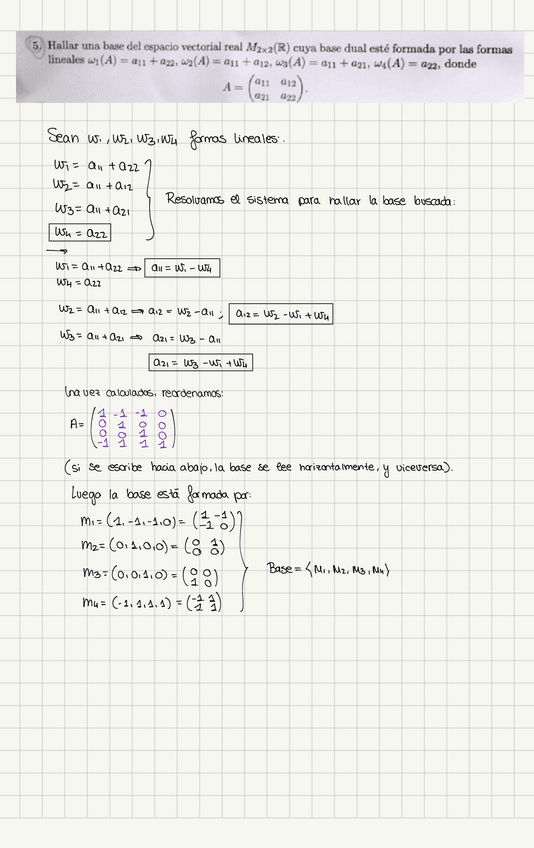 5. Hallar una base del espacio vectorial real M₂ₓ₂(ℝ) cuya base dual esté formada por las formas
lineales ω₁(A) = a₁₁ + a₂₂, ω₂(A) = a₁₁ + a₁₂, ω₃(A) = a₁₁ + a₂₁, ω₄(A) = a₂₂, donde
A = (a₁₁ a₁₂
a₂₁ a₂₂).
Sean w₁, w₂, w₃, w₄ formas lineales:.
w₁ = a₁₁ + a₂₂
w₂ = a₁₁ + a₁₂
Resolvamos el sistema para hallar la base buscada:
w₃ = a₁₁ + a₂₁
w₄ = a₂₂
→
w₁ = a₁₁ + a₂₂ ⇒ a₁₁ = w₁ - w₄
w₄ = a₂₂
w₂ = a₁₁ + a₁₂ ⇒ a₁₂ = w₂ - a₁₁ ; a₁₂ = w₂ - w₁ + w₄
w₃ = a₁₁ + a₂₁ ⇒ a₂₁ = w₃ - a₁₁
a₂₁ = w₃ - w₁ + w₄
Una vez calculados, reordenamos:
A = (1 -1 -1 0
0 1 0 0
0 0 1 0
-1 1 1 1)
(si se escribe hacia abajo, la base se lee horizontalmente, y viceversa).
Luego la base está formada por:
m₁ = (1, -1, -1, 0) = (1 -1
-1 0)
m₂ = (0, 1, 0, 0) = (0 1
0 0)
m₃ = (0, 0, 1, 0) = (0 0
1 0)
Base = ⟨M₁, M₂, M₃, M₄⟩
m₄ = (-1, 1, 1, 1) = (-1 1
1 1)